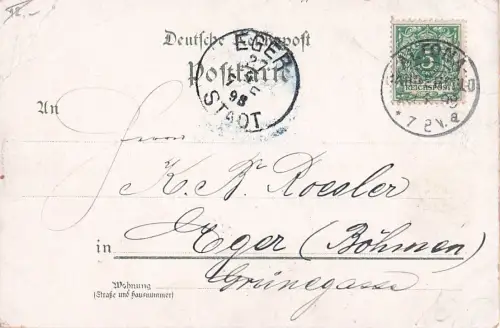 12.-
Deutsche Reichspost
Postkarte
EGER
27
98
STADT
5
REICHSPOST
* 7 8 N. a
An
Herrn
K. N. Roesler
in Eger (Böhmen)
Grünegasse
Wohnung
(Straße und Hausnummer)